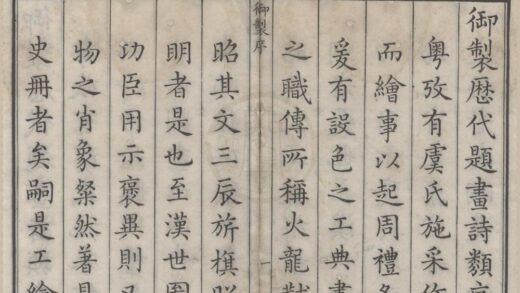 御製歷代題畫詩類
粤攷有虞氏施采作
而繪事以起周禮冬
爰有設色之工典
之職傳所稱火龍黼
御製序
一
昭其文三辰旂旗昭
明者是也至漢世圖
功臣用示褒異則又
物之肖象粲然著見
史冊者矣嗣是工繪